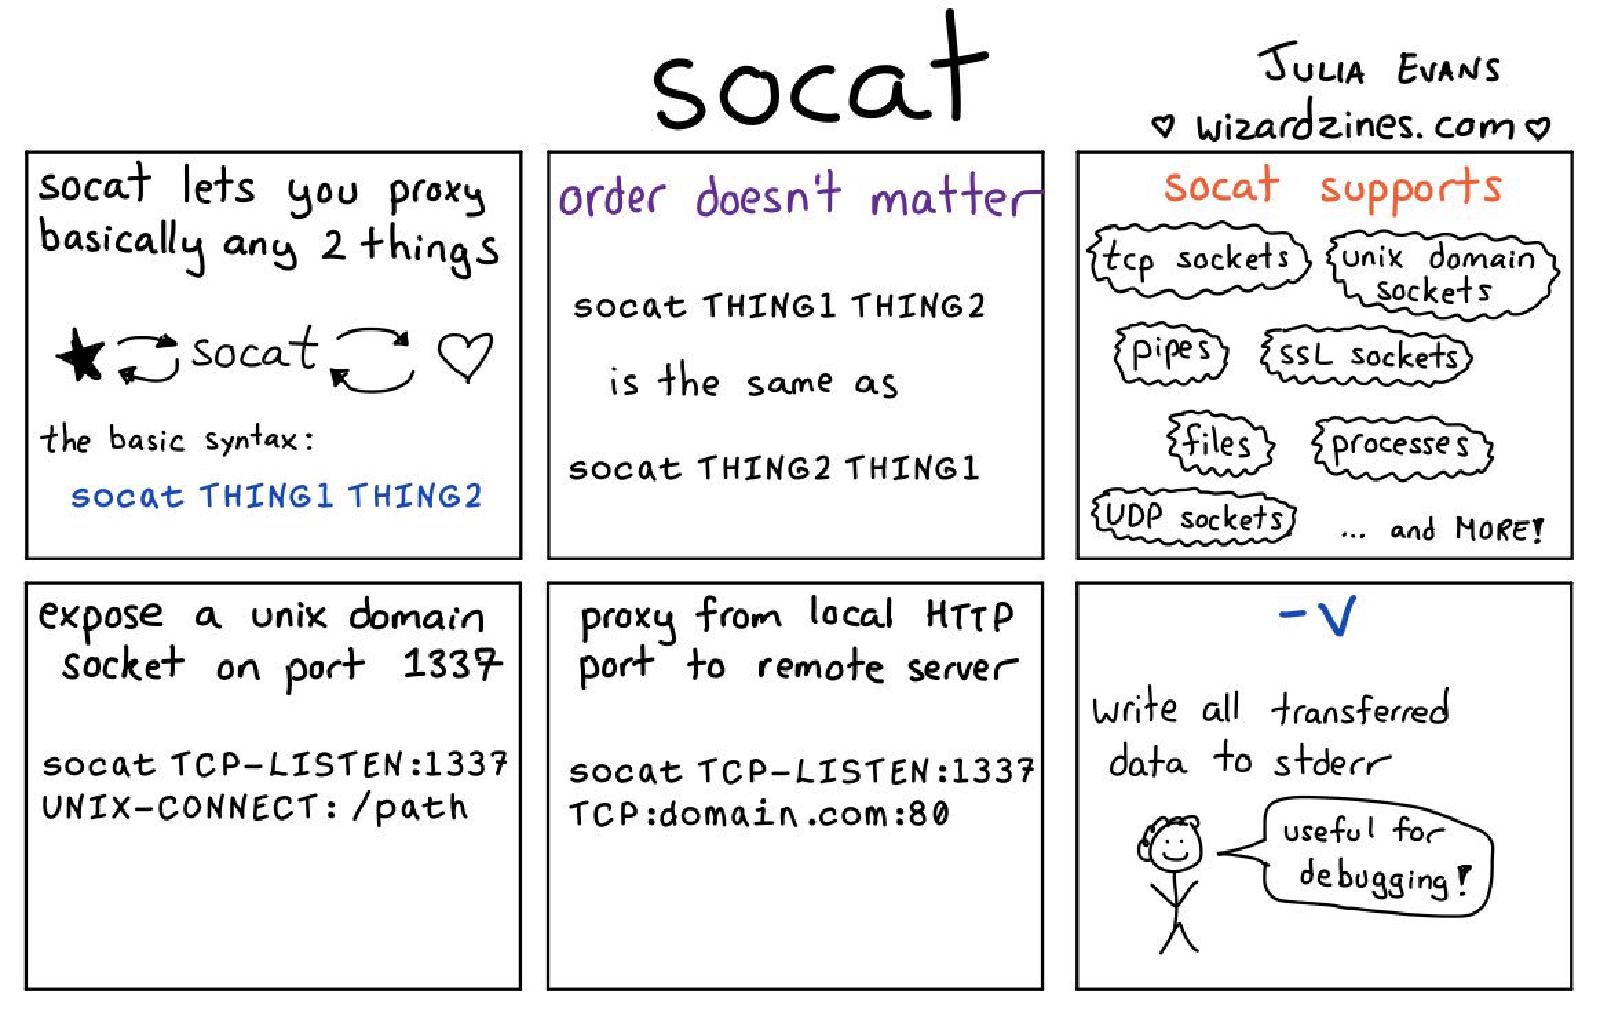 socat
JULIA EVANS
♡ wizardzines.com ♡
socat lets you proxy
basically any 2 things
★ socat ♡
the basic syntax:
socat THING1 THING2
order doesn't matter
socat THING1 THING2
is the same as
socat THING2 THING1
socat supports
tcp sockets
unix domain
sockets
pipes
SSL sockets
files
processes
UDP sockets
... and MORE!
expose a unix domain
socket on port 1337
socat TCP-LISTEN:1337
UNIX-CONNECT:/path
proxy from local HTTP
port to remote server
socat TCP-LISTEN:1337
TCP:domain.com:80
-v
write all transferred
data to stderr
useful for
debugging!